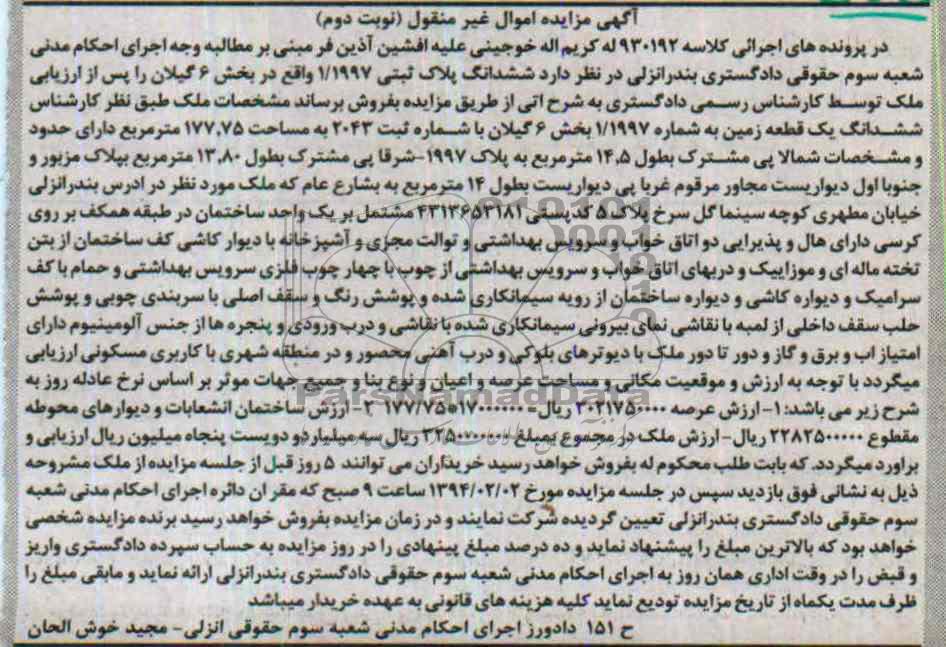 آگهی مزایده اموال غیر منقول (نوبت دوم)
در پرونده های اجرائی کلاسه ۹۳۰۱۹۲ له کریم اله خوجینی علیه افشین آذین فر مبنی بر مطالبه وجه اجرای احکام مدنی
شعبه سوم حقوقی دادگستری بندرانزلی در نظر دارد ششدانگ پلاک ثبتی ۱/۱۹۹۷ واقع در بخش ۶ گیلان را پس از ارزیابی
ملک توسط کارشناس رسمی دادگستری به شرح اتی از طریق مزایده بفروش برساند مشخصات ملک طبق نظر کارشناس
ششدانگ یک قطعه زمین به شماره ۱/۱۹۹۷ بخش ۶ گیلان با شماره ثبت ۲۰۴۳ به مساحت ۱۷۷,۷۵ مترمربع دارای حدود
و مشخصات شمالا پی مشترک بطول ۱۴,۵ مترمربع به پلاک ۱۹۹۷-شرقا پی مشترک بطول ۱۳,۸۰ مترمربع بپلاک مزبور و
جنوبا اول دیواریست مجاور مرقوم غربا پی دیواریست بطول ۱۴ مترمربع به بشارع عام که ملک مورد نظر در ادرس بندرانزلی
خیابان مطهری کوچه سینما گل سرخ پلاک ۵ کدپستی ۴۳۱۳۶۵۳۱۸۱ مشتمل بر یک واحد ساختمان در طبقه همکف بر روی
کرسی دارای هال و پذیرایی دو اتاق خواب و سرویس بهداشتی و توالت مجزی و آشپزخانه با دیوار کاشی کف ساختمان از بتن
تخته ماله ای و موزاییک و دربهای اتاق خواب و سرویس بهداشتی از چوب با چهار چوب فلزی سرویس بهداشتی و حمام با کف
سرامیک و دیواره کاشی و دیواره ساختمان از رویه سیمانکاری شده و پوشش رنگ و سقف اصلی با سربندی چوبی و پوشش
حلب سقف داخلی از لمبه با نقاشی نمای بیرونی سیمانکاری شده با نقاشی و درب ورودی و پنجره ها از جنس آلومینیوم دارای
امتیاز اب و برق و گاز و دور تا دور ملک با دیوترهای بلوکی و درب آهنی محصور و در منطقه شهری با کاربری مسکونی ارزیابی
میگردد با توجه به ارزش و موقعیت مکانی و مساحت عرصه و اعیان و نوع بنا و جمیع جهات موثر بر اساس نرخ عادله روز به
شرح زیر می باشد: ۱- ارزش عرصه ۳۰۲۱۷۵۰۰۰۰ ریال= ۱۷۰۰۰۰۰۰*۱۷۷/۷۵ ۳- ارزش ساختمان انشعابات و دیوارهای محوطه
مقطوع ۲۲۸۲۵۰۰۰۰۰ ریال- ارزش ملک در مجموع بمبلغ ریال سه میلیارد و دویست پنجاه میلیون ریال ارزیابی و
براورد میگردد. که بابت طلب محکوم له بفروش خواهد رسید خریداران می توانند ۵ روز قبل از جلسه مزایده از ملک مشروحه
ذیل به نشانی فوق بازدید سپس در جلسه مزایده مورخ ۱۳۹۴/۰۲/۰۲ ساعت ۹ صبح که مقر ان دائره اجرای احکام مدنی شعبه
سوم حقوقی دادگستری بندرانزلی تعیین گردیده شرکت نمایند و در زمان مزایده بفروش خواهد رسید برنده مزایده شخصی
خواهد بود که بالاترین مبلغ را پیشنهاد نماید و ده درصد مبلغ پینهادی را در روز مزایده به حساب سپرده دادگستری واریز
و قبض را در وقت اداری همان روز به اجرای احکام مدنی شعبه سوم حقوقی دادگستری بندرانزلی ارائه نماید و مابقی مبلغ را
ظرف مدت یکماه از تاریخ مزایده تودیع نماید کلیه هزینه های قانونی به عهده خریدار میباشد
ح ۱۵۱ دادورز اجرای احکام مدنی شعبه سوم حقوقی انزلی- مجید خوش الحان
ParsNamadData